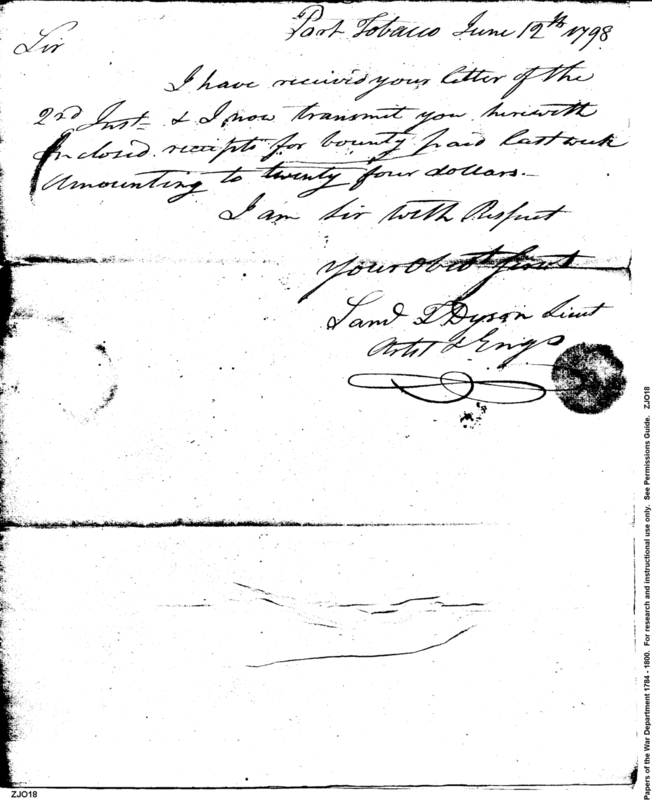 Port Tobacco June 12th 1798
Sir
I have received your letter of the
2nd Inst & I now transmit you herewith
Inclosed receipts for bounty paid last week
Amounting to twenty four dollars.–
I am Sir with Respect
Your Obed Servt
Saml T Dyson Lieut
Artist & Engs
ZJO18
Papers of the War Department 1784 - 1800. For research and instructional use only. See Permissions Guide. ZJO18